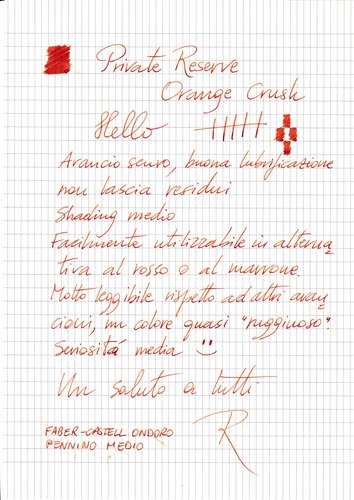 Private Reserve
Orange Crush
Hello
Arancio scuro, buona lubrificazione
non lascia residui
Shading medio
Facilmente utilizzabile in alterna
tiva al rosso o al marrone.
Molto leggibile rispetto ad altri aran
cioni, un colore quasi "rugginoso".
Seriosità media :)
Un saluto a tutti
R
FABER-CASTELL ONDORO
PENNINO MEDIO